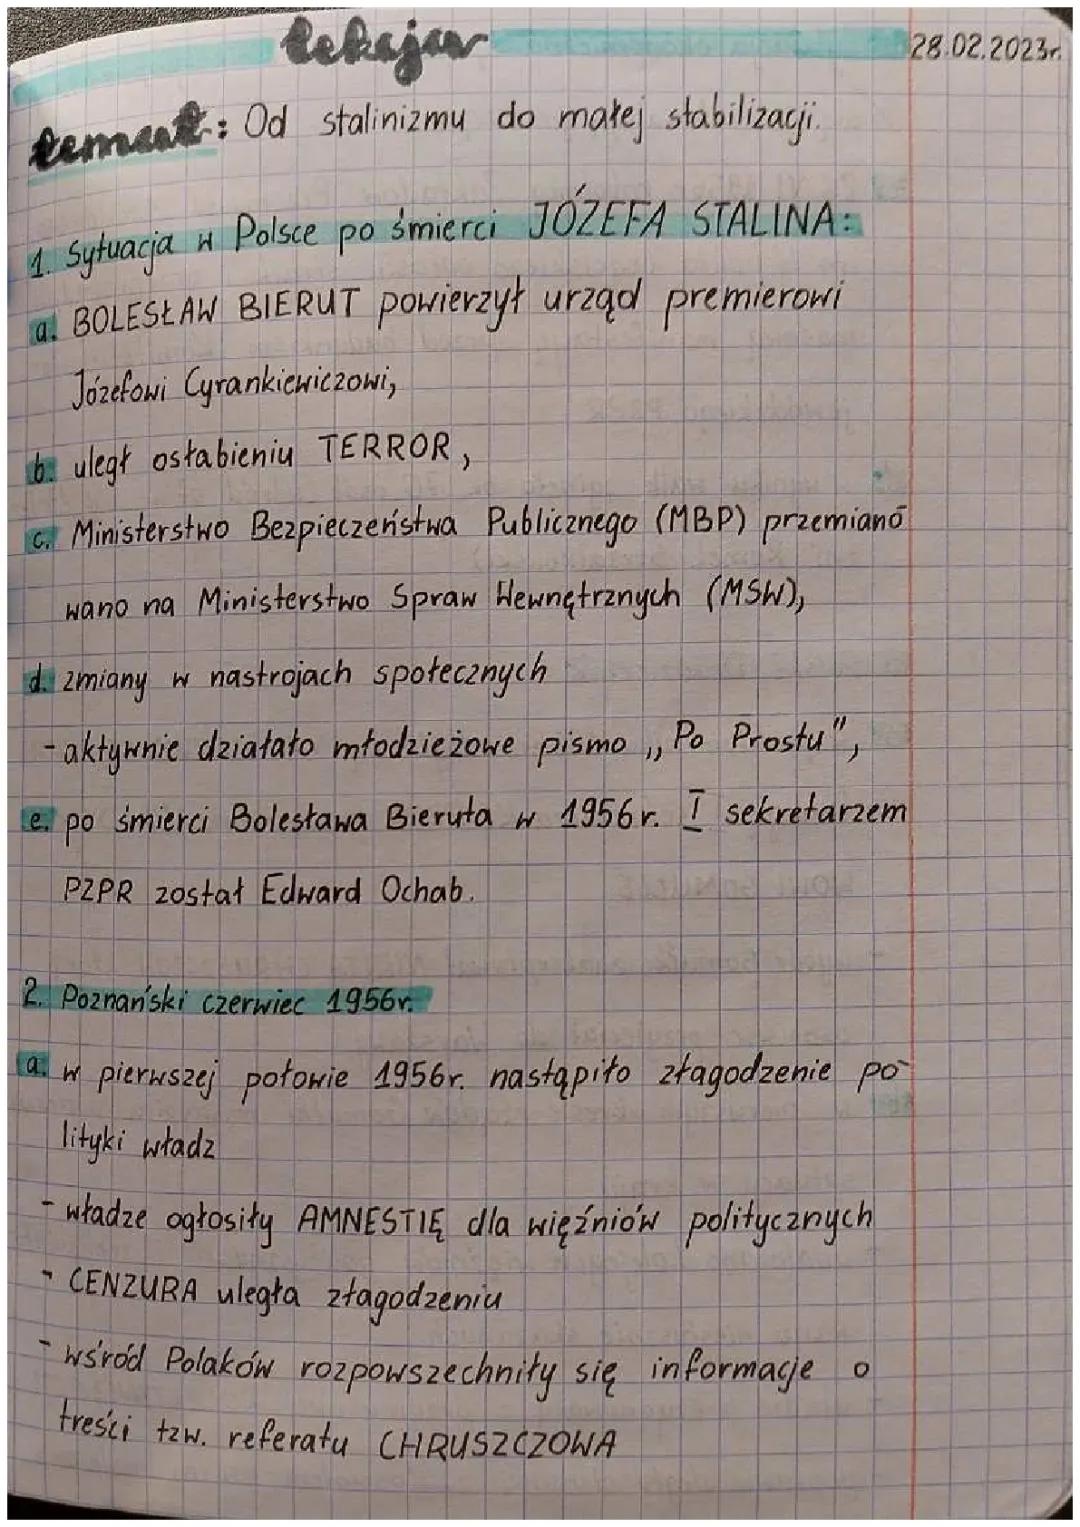 Lekcja
28.02.2023r.
Temat: Od stalinizmu do małej stabilizacji.
1. Sytuacja w Polsce po śmierci JÓZEFA STALINA:
a. BOLESŁAW BIERUT powierzył urząd premierowi
Józefowi Cyrankiewiczowi,
b. uległ osłabieniu TERROR,
c. Ministerstwo Bezpieczeństwa Publicznego (MBP) przemiano-
wano na Ministerstwo Spraw Wewnętrznych (MSW),
d. zmiany w nastrojach społecznych
- aktywnie działało młodzieżowe pismo ,,Po Prostu",
e. po śmierci Bolesława Bieruta w 1956r. I sekretarzem
PZPR został Edward Ochab.
2. Poznański czerwiec 1956r.
a. w pierwszej połowie 1956r. nastąpiło złagodzenie po-
lityki władz
- władze ogłosiły AMNESTIĘ dla więźniów politycznych
- CENZURA uległa złagodzeniu
- wśród Polaków rozpowszechniły się informacje o
treści tzw. referatu CHRUSZCZOWA